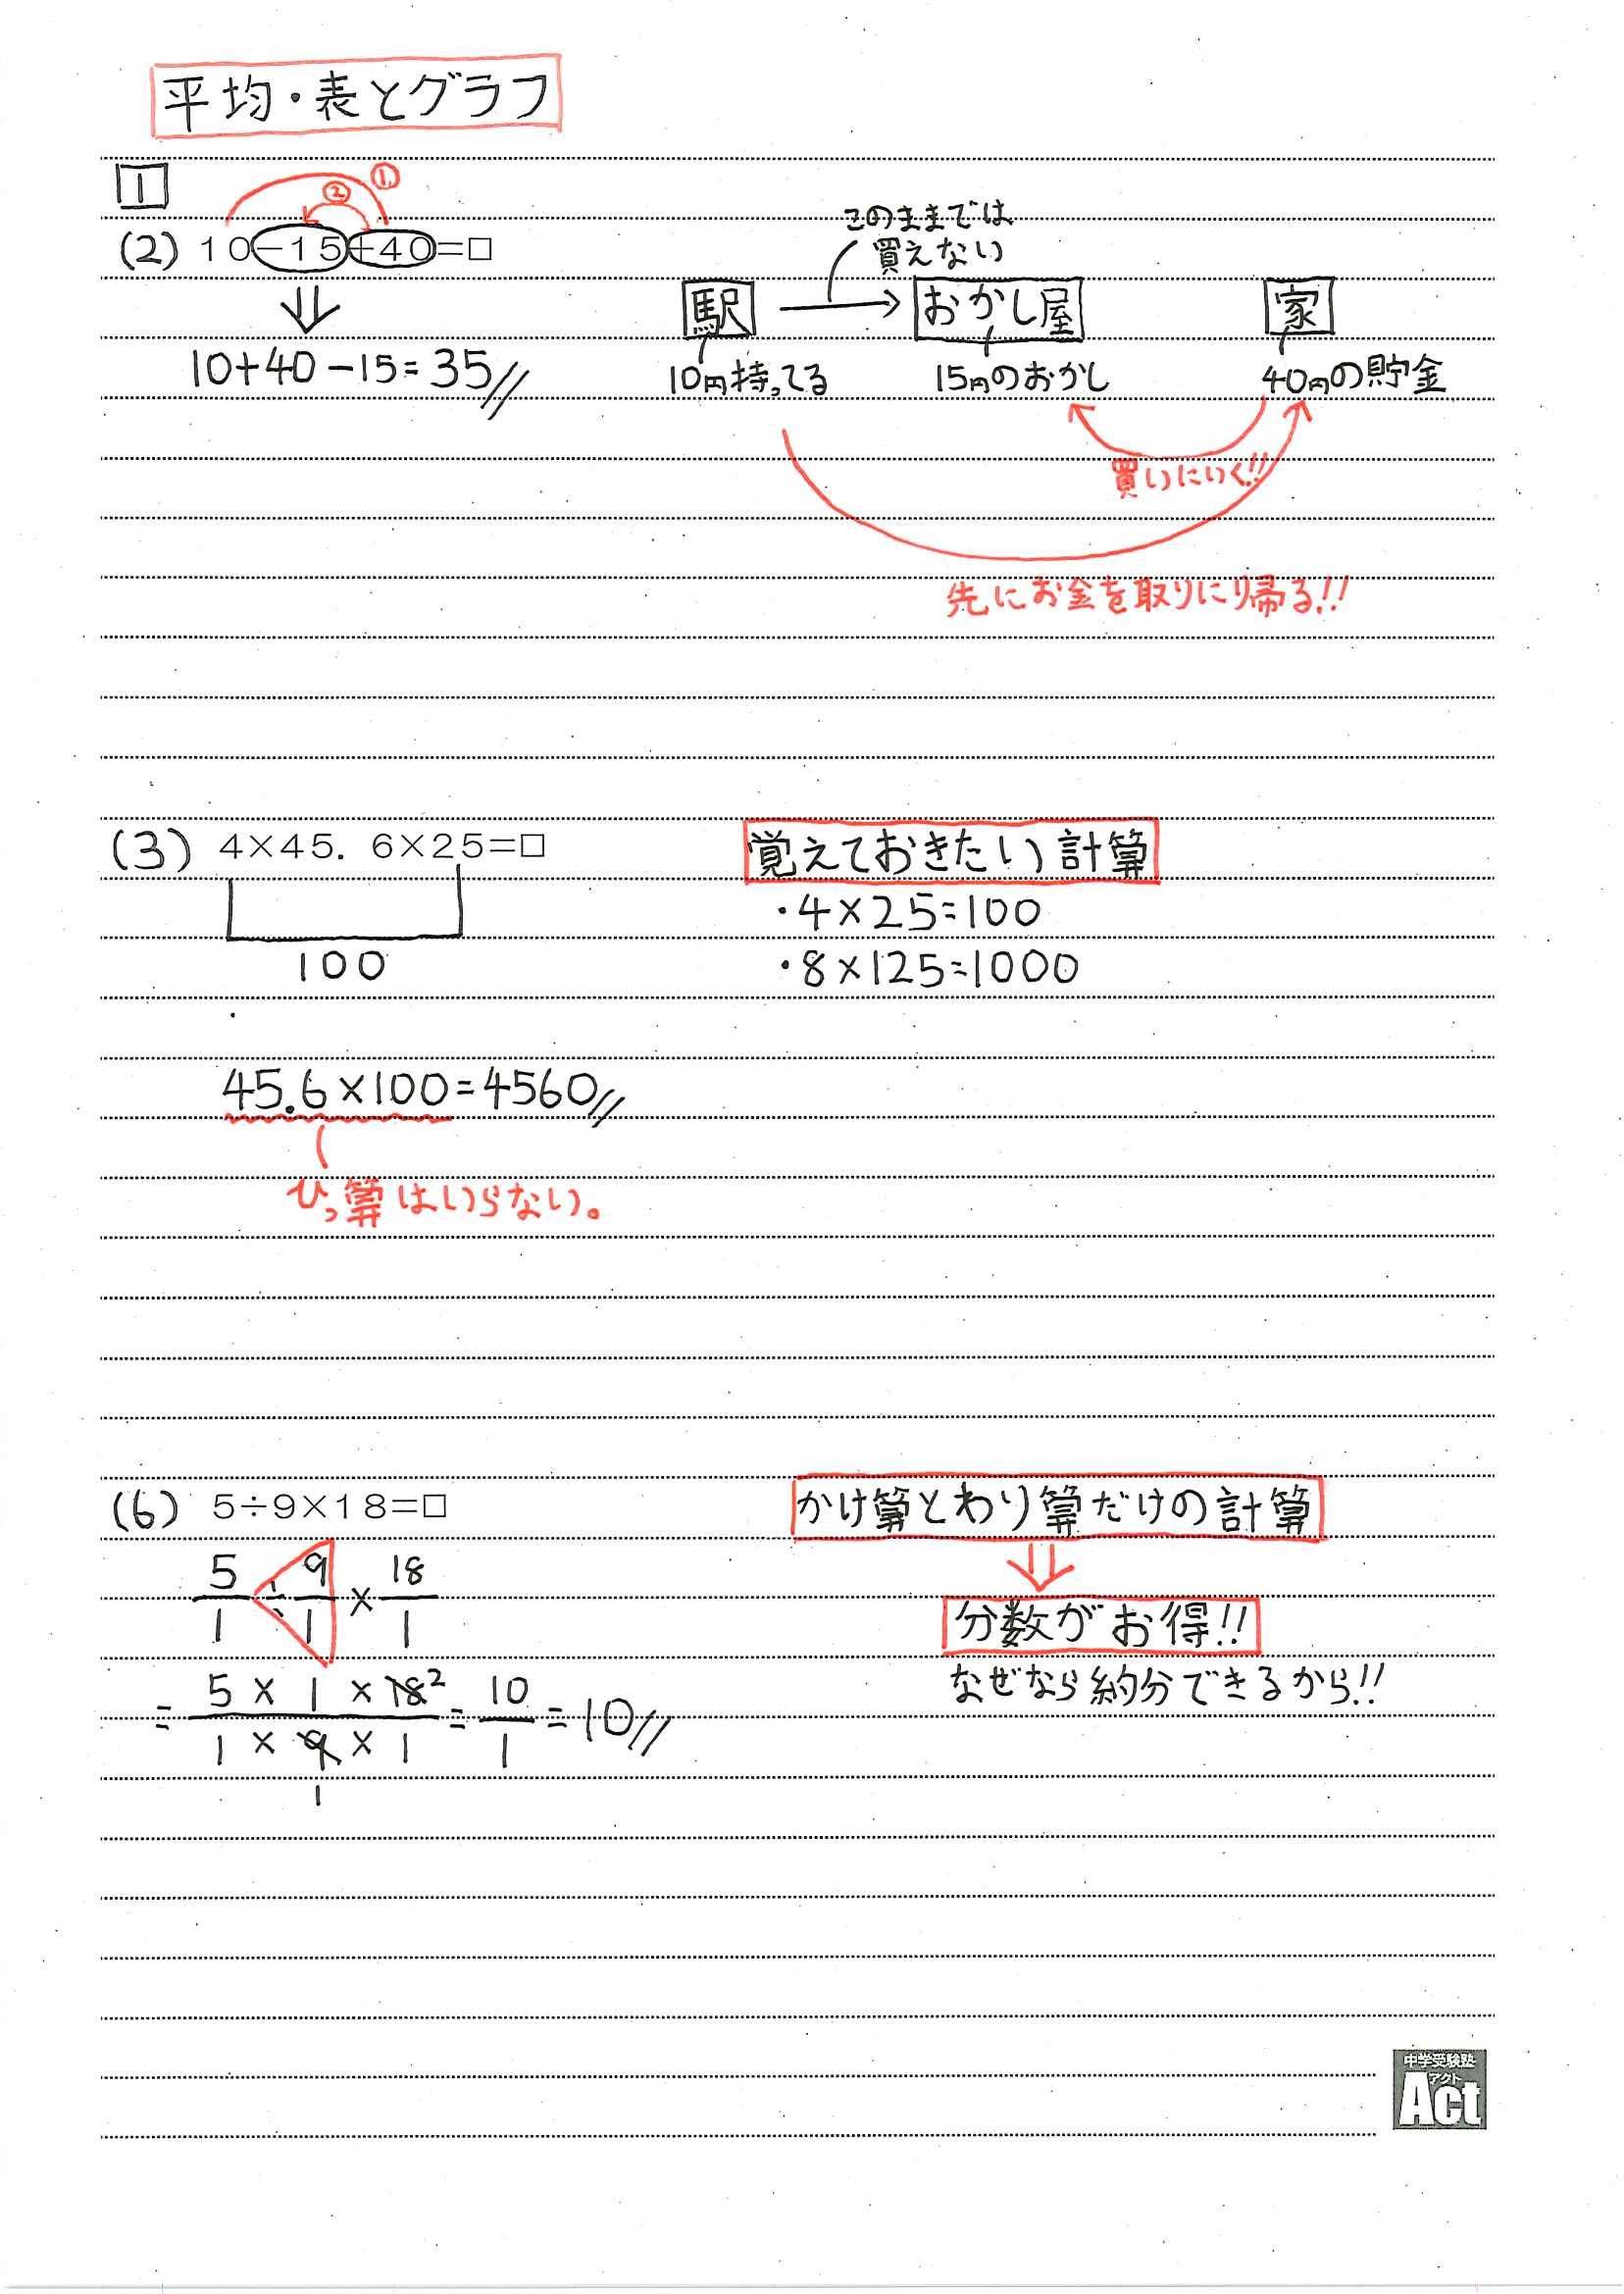 平均・表とグラフ
1
① ②
(2) 10−15+40=□
10+40−15=35
このままでは
買えない
駅 おかし屋 家
10円持ってる 15円のおかし 40円の貯金
買いにいく!!
先にお金を取りに帰る!!
(3) 4×45.6×25=□
100
45.6×100=4560
ひっ算はいらない。
覚えておきたい計算
・4×25=100
・8×125=1000
(6) 5÷9×18=□
5/1 ÷ 9/1 × 18/1
= 5×1×18 2 / 1×9×1 = 10/1 = 10
1
かけ算とわり算だけの計算
分数がお得!!
なぜなら約分できるから!!
中学受験塾
アクト
Act